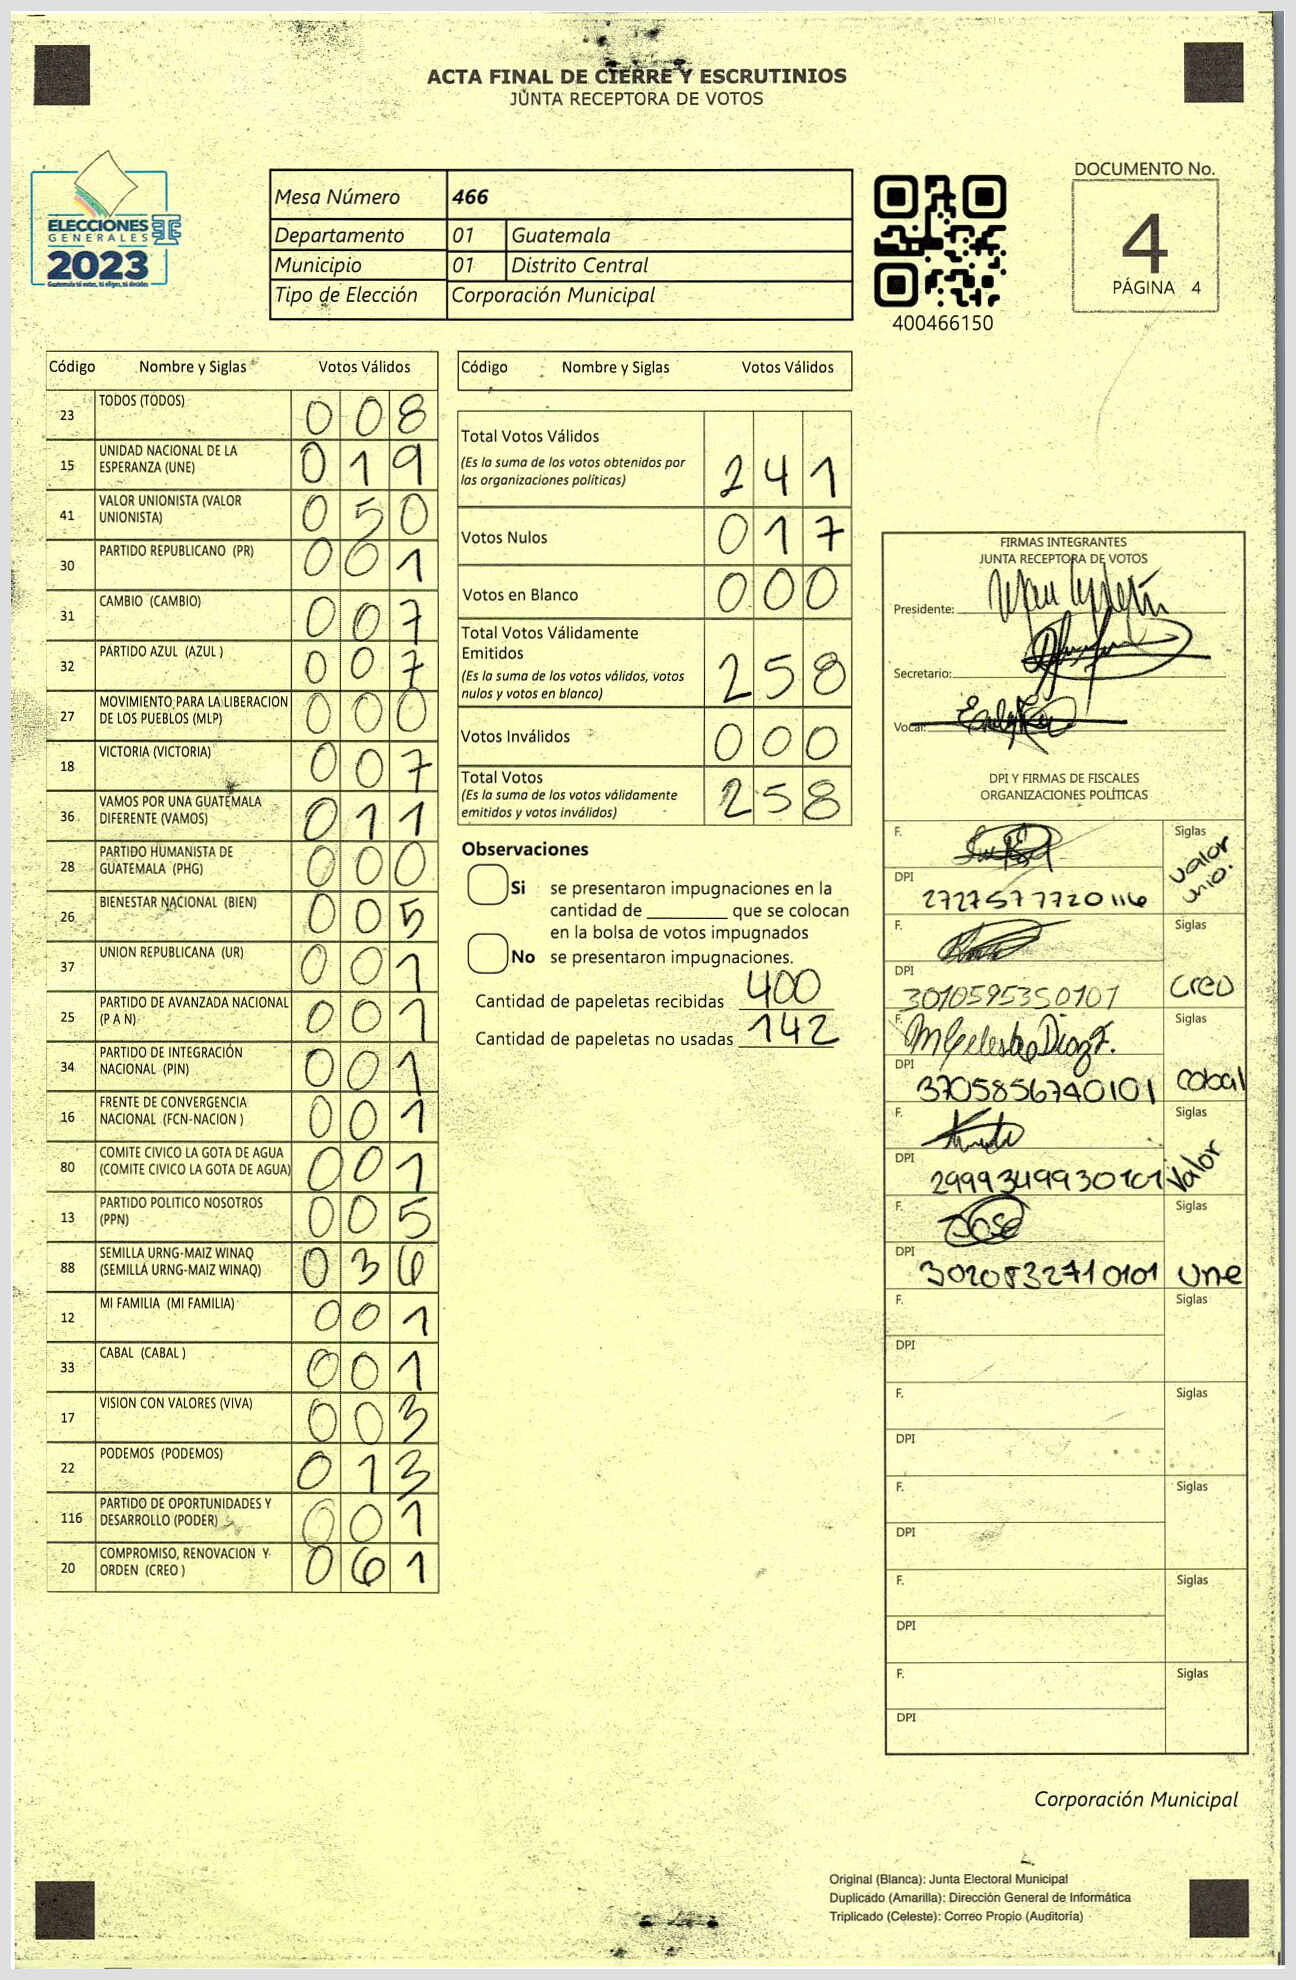 ACTA FINAL DE CIERRE Y ESCRUTINIOS
JUNTA RECEPTORA DE VOTOS
ELECCIONES
GENERALES
2023
Guatemala tú votas, tú eliges, tú decides
Mesa Número 466
Departamento 01 Guatemala
Municipio 01 Distrito Central
Tipo de Elección Corporación Municipal
400466150
DOCUMENTO No.
4
PÁGINA 4
Código Nombre y Siglas Votos Válidos
23 TODOS (TODOS) 008
15 UNIDAD NACIONAL DE LA ESPERANZA (UNE) 019
41 VALOR UNIONISTA (VALOR UNIONISTA) 050
30 PARTIDO REPUBLICANO (PR) 001
31 CAMBIO (CAMBIO) 007
32 PARTIDO AZUL (AZUL ) 007
27 MOVIMIENTO PARA LA LIBERACION DE LOS PUEBLOS (MLP) 000
18 VICTORIA (VICTORIA) 007
36 VAMOS POR UNA GUATEMALA DIFERENTE (VAMOS) 011
28 PARTIDO HUMANISTA DE GUATEMALA (PHG) 000
26 BIENESTAR NACIONAL (BIEN) 005
37 UNION REPUBLICANA (UR) 001
25 PARTIDO DE AVANZADA NACIONAL (P A N) 001
34 PARTIDO DE INTEGRACIÓN NACIONAL (PIN) 001
16 FRENTE DE CONVERGENCIA NACIONAL (FCN-NACION ) 001
80 COMITE CIVICO LA GOTA DE AGUA (COMITE CIVICO LA GOTA DE AGUA) 001
13 PARTIDO POLITICO NOSOTROS (PPN) 005
88 SEMILLA URNG-MAIZ WINAQ (SEMILLA URNG-MAIZ WINAQ) 036
12 MI FAMILIA (MI FAMILIA) 001
33 CABAL (CABAL ) 001
17 VISION CON VALORES (VIVA) 003
22 PODEMOS (PODEMOS) 013
116 PARTIDO DE OPORTUNIDADES Y DESARROLLO (PODER) 001
20 COMPROMISO, RENOVACION Y ORDEN (CREO ) 061
Código Nombre y Siglas Votos Válidos
Total Votos Válidos 241
(Es la suma de los votos obtenidos por
las organizaciones políticas)
Votos Nulos 017
Votos en Blanco 000
Total Votos Válidamente
Emitidos 258
(Es la suma de los votos válidos, votos
nulos y votos en blanco)
Votos Inválidos 000
Total Votos 258
(Es la suma de los votos válidamente
emitidos y votos inválidos)
Observaciones
Si se presentaron impugnaciones en la
cantidad de ________ que se colocan
en la bolsa de votos impugnados
No se presentaron impugnaciones.
Cantidad de papeletas recibidas 400
Cantidad de papeletas no usadas 142
FIRMAS INTEGRANTES
JUNTA RECEPTORA DE VOTOS
Presidente:
Secretario:
Vocal:
DPI Y FIRMAS DE FISCALES
ORGANIZACIONES POLÍTICAS
F. Siglas
Valor
unio.
DPI 2727577720116
F. Siglas
DPI 3010595350101 Creo
F. M Celeste Diaz F. Siglas
DPI 3705856740101 cabal
F. Siglas
DPI 2999349930101 Valor
F. Jose Siglas
DPI 3020832710101 une
F. Siglas
DPI
F. Siglas
DPI
F. Siglas
DPI
F. Siglas
DPI
F. Siglas
DPI
Corporación Municipal
Original (Blanca): Junta Electoral Municipal
Duplicado (Amarilla): Dirección General de Informática
Triplicado (Celeste): Correo Propio (Auditoría)